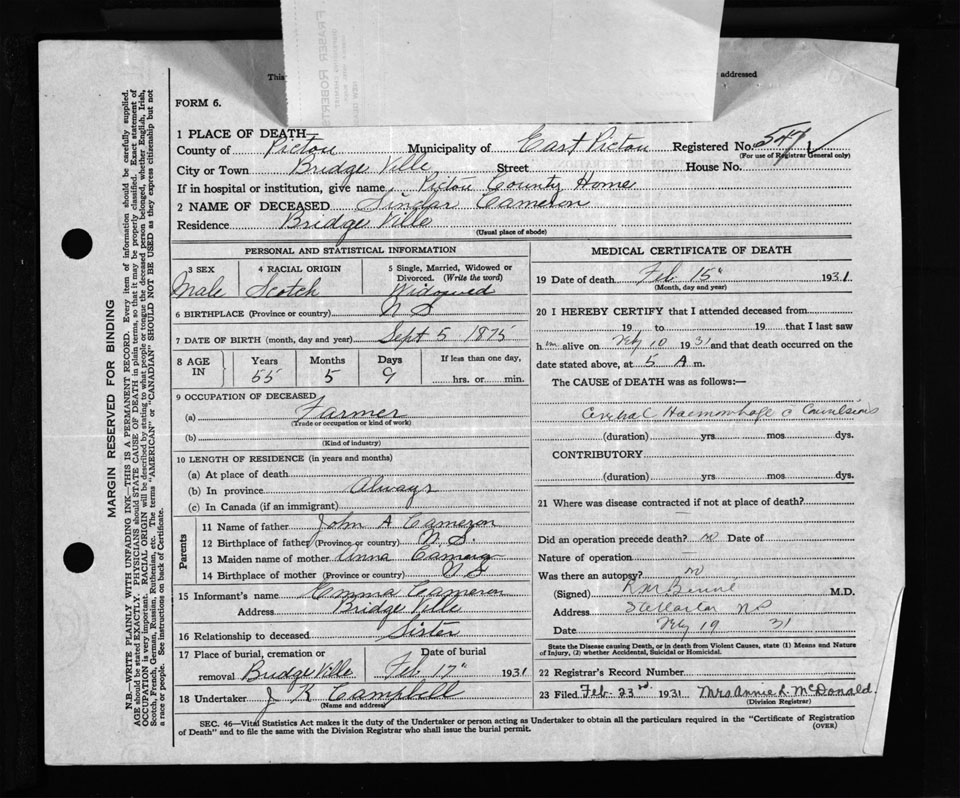 FRASER ROBERT
This
addressed
FORM 6.
1 PLACE OF DEATH
County of Pictou Municipality of East Pictou Registered No. 547
(For use of Registrar General only)
City or Town Bridge Ville Street House No.
If in hospital or institution, give name Pictou County Home
2 NAME OF DECEASED Cameron
Residence Bridge Ville
(Usual place of abode)
PERSONAL AND STATISTICAL INFORMATION
3 SEX 4 RACIAL ORIGIN 5 Single, Married, Widowed or Divorced. (Write the word)
Male Scotch Widowed
6 BIRTHPLACE (Province or country) N S
7 DATE OF BIRTH (month, day and year) Sept 5 1875
8 AGE IN Years Months Days If less than one day,
55 5 9 hrs. or min.
9 OCCUPATION OF DECEASED
(a) Farmer
(Trade or occupation or kind of work)
(b)
(Kind of industry)
10 LENGTH OF RESIDENCE (in years and months)
(a) At place of death
(b) In province Always
(c) In Canada (if an immigrant)
Parents
11 Name of father John A Cameron
12 Birthplace of father (Province or country) N. S.
13 Maiden name of mother Anna Cameron
14 Birthplace of mother (Province or country) N S
15 Informant's name Emma Cameron
Address Bridge Ville
16 Relationship to deceased Sister
17 Place of burial, cremation or Date of burial
removal Bridge Ville Feb 17" 1931
18 Undertaker J K Campbell
(Name and address)
MEDICAL CERTIFICATE OF DEATH
19 Date of death Feb 15" 1931.
(Month, day and year)
20 I HEREBY CERTIFY that I attended deceased from
19 to 19 that I last saw
him alive on Feby 10 1931 and that death occurred on the
date stated above, at 5 A m.
The CAUSE of DEATH was as follows:—
Cerebral Haemorrhage c Convulsions
(duration) yrs mos dys.
CONTRIBUTORY
(duration) yrs mos dys.
21 Where was disease contracted if not at place of death?
Did an operation precede death? no Date of
Nature of operation —
Was there an autopsy? no
(Signed) M.D.
Address Stellarton NS
Date Feby 19 31
State the Disease causing Death, or in death from Violent Causes, state (1) Means and Nature of Injury, (2) whether Accidental, Suicidal or Homicidal.
22 Registrar's Record Number
23 Filed Feb. 23rd 1931 Mrs Annie L. McDonald.
(Division Registrar)
SEC. 46—Vital Statistics Act makes it the duty of the Undertaker or person acting as Undertaker to obtain all the particulars required in the "Certificate of Registration
of Death" and to file the same with the Division Registrar who shall issue the burial permit.
(OVER)
MARGIN RESERVED FOR BINDING
N.B.—WRITE PLAINLY WITH UNFADING INK—THIS IS A PERMANENT RECORD. Every item of information should be carefully supplied.
AGE should be stated EXACTLY. PHYSICIANS should STATE CAUSE OF DEATH in plain terms, so that it may be properly classified. Exact statement of
OCCUPATION is very important. RACIAL ORIGIN will be described by stating to what people or tongue the deceased person belonged, whether English, Irish,
Scotch, French, German, Russian, Ruthenian, etc. The terms "AMERICAN" or "CANADIAN" SHOULD NOT BE USED as they express citizenship but not
a race or people. See instructions on back of Certificate.